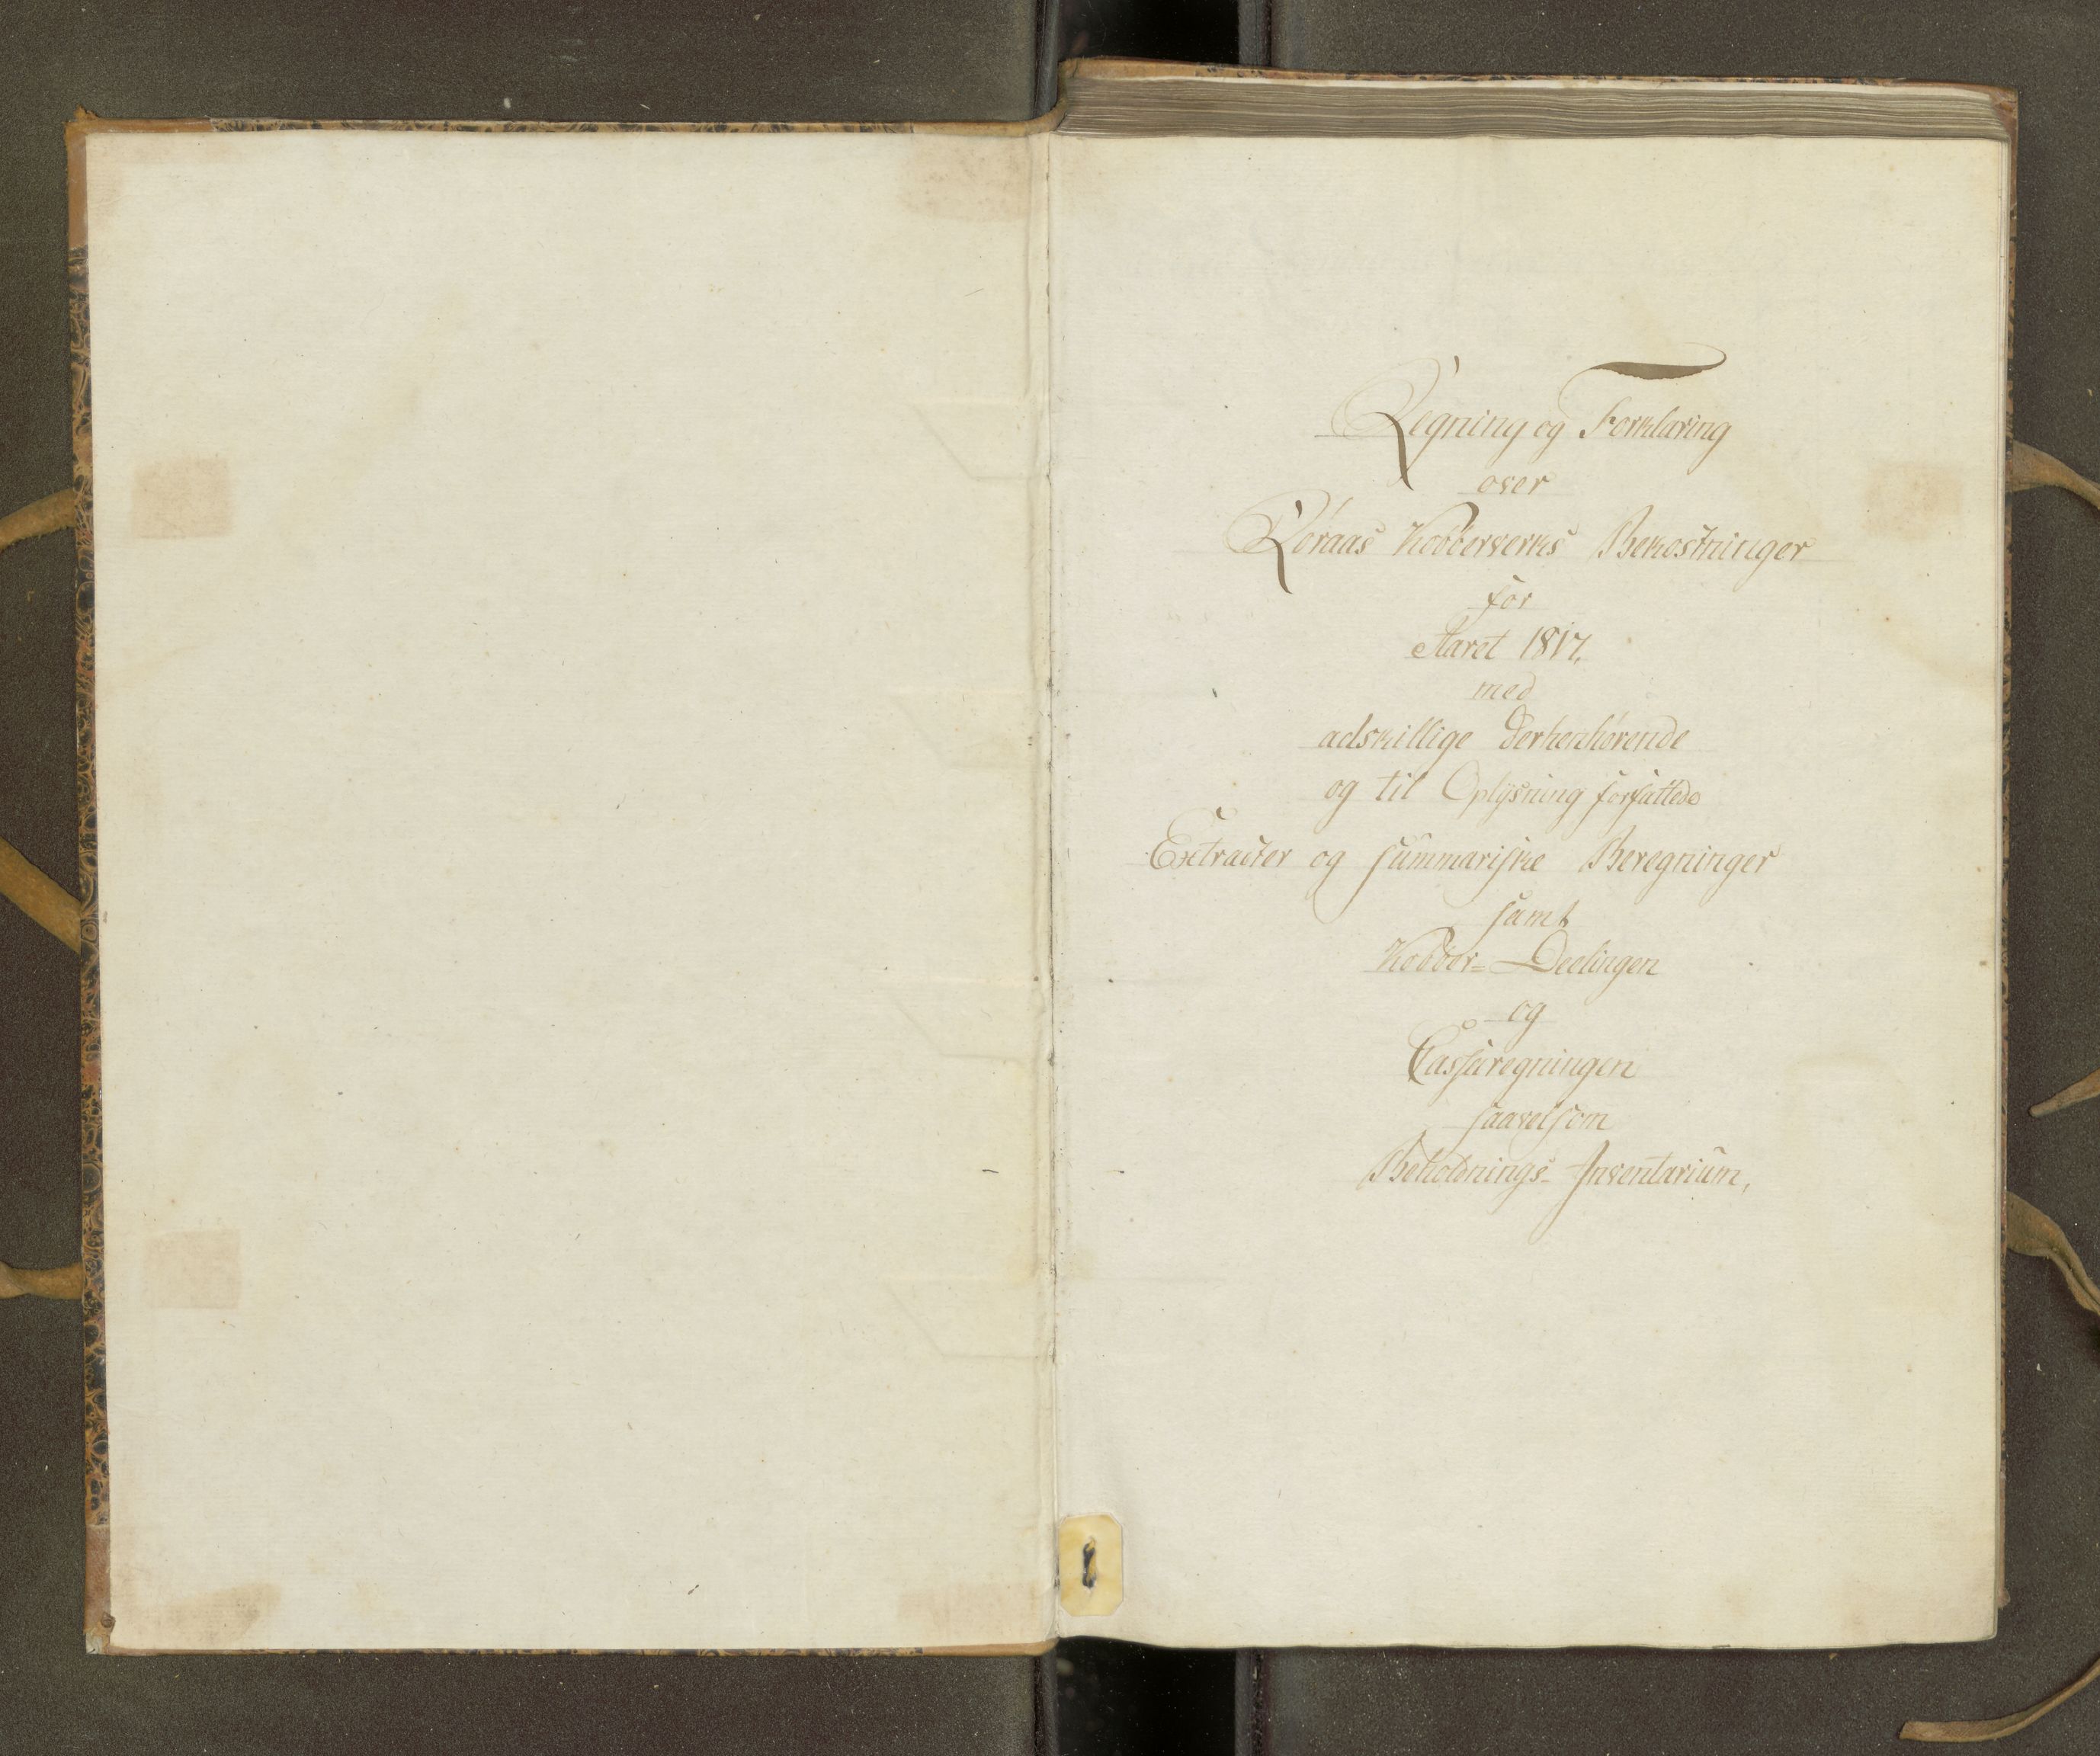 Regning og Forklaring
over
Røraas Kobberverks Bekostninger
for
Aaret 1817.
med
adskillige derhenhørende
og til Oplysning forfattede
Extracter og summariske Beregninger
samt
Kobber-Deelingen
og
Cassaregningen
saavelsom
Beholdnings-Inventarium,